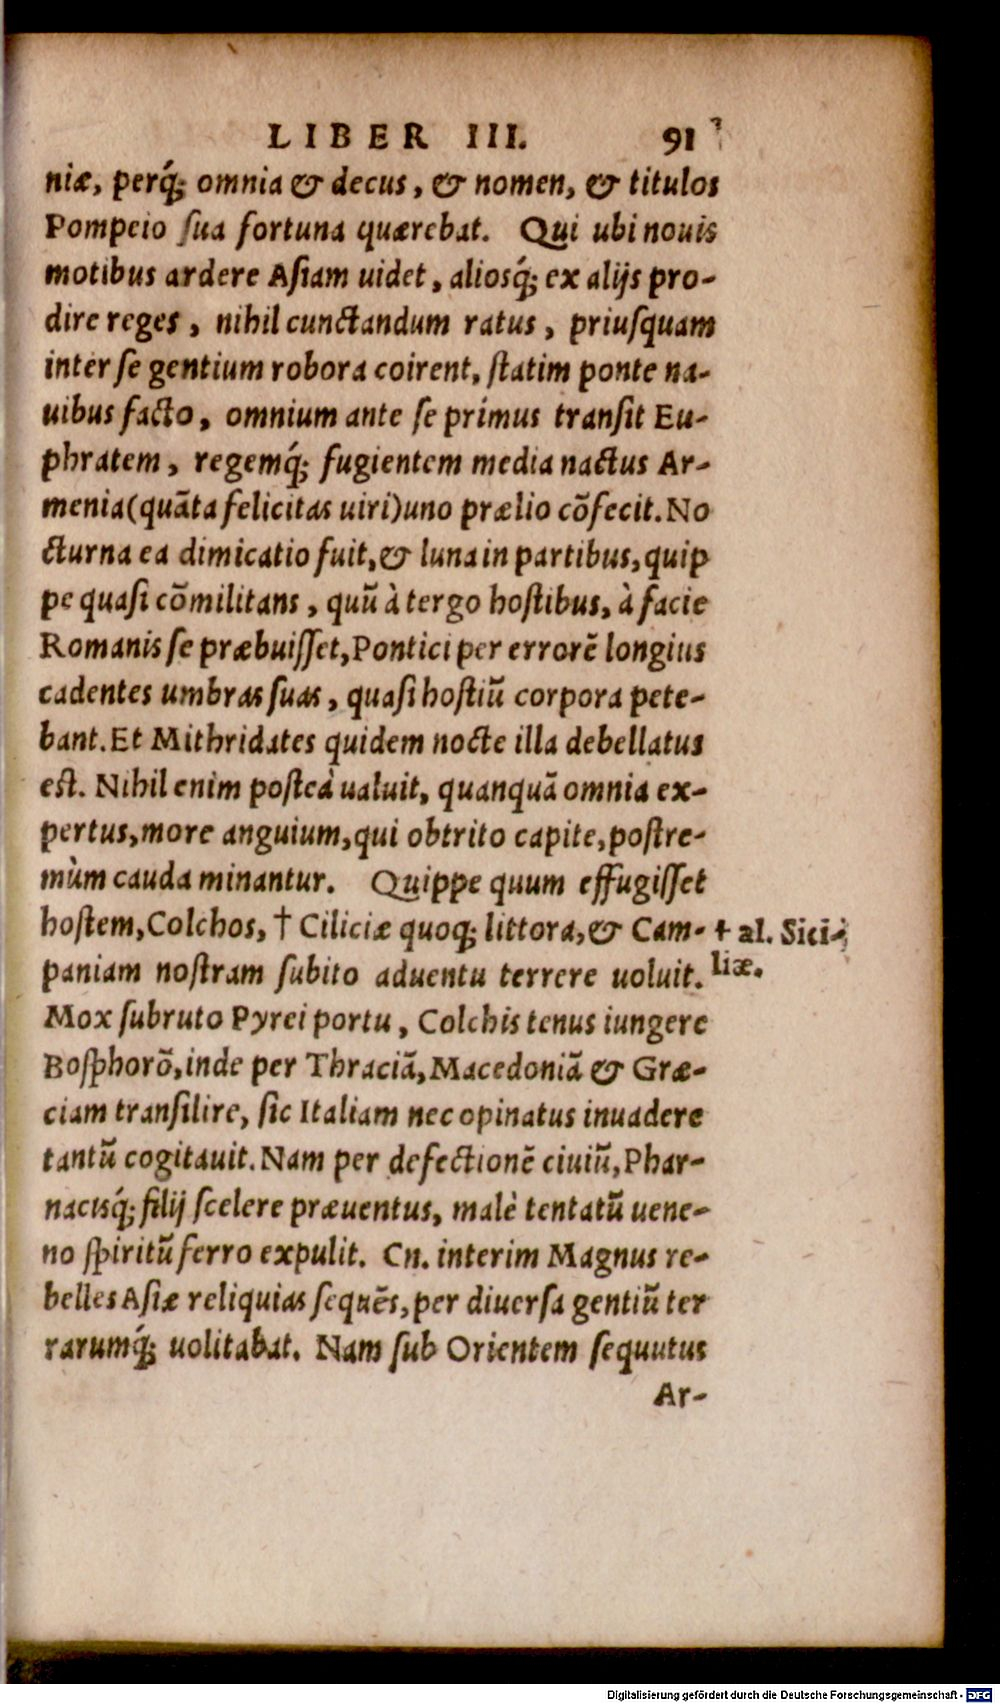 LIBER III. 91
niæ, perq́; omnia & decus, & nomen, & titulos
Pompeio ſua fortuna quærebat. Qui ubi nouis
motibus ardere Aſiam uidet, alioſq́; ex alijs pro-
dire reges, nihil cunctandum ratus, priuſquam
inter ſe gentium robora coirent, ſtatim ponte na-
uibus facto, omnium ante ſe primus tranſit Eu-
phratem, regemq́; fugientem media nactus Ar-
menia (quãta felicitas uiri) uno prælio cõfecit. No
cturna ea dimicatio fuit, & luna in partibus, quip
pe quaſi cõmilitans, quũ à tergo hoſtibus, à facie
Romanis ſe præbuiſſet, Pontici per errorẽ longius
cadentes umbras ſuas, quaſi hoſtiũ corpora pete-
bant. Et Mithridates quidem nocte illa debellatus
eſt. Nihil enim poſteà ualuit, quanquã omnia ex-
pertus, more anguium, qui obtrito capite, poſtre-
mùm cauda minantur. Quippe quum effugiſſet
hoſtem, Colchos, † Ciliciæ quoq; littora, & Cam-
† al. Sici-
liæ.
paniam noſtram ſubito aduentu terrere uoluit.
Mox ſubruto Pyrei portu, Colchis tenus iungere
Boſphorõ, inde per Thraciã, Macedoniã & Græ-
ciam tranſilire, ſic Italiam nec opinatus inuadere
tantũ cogitauit. Nam per defectionẽ ciuiũ, Phar-
nacisq́; filij ſcelere præuentus, malè tentatũ uene-
no ſpiritũ ferro expulit. Cn. interim Magnus re-
belles Aſiæ reliquias ſequẽs, per diuerſa gentiũ ter
rarumq́; uolitabat. Nam ſub Orientem ſequutus
Ar-
Digitalisierung gefördert durch die Deutsche Forschungsgemeinschaft - DFG